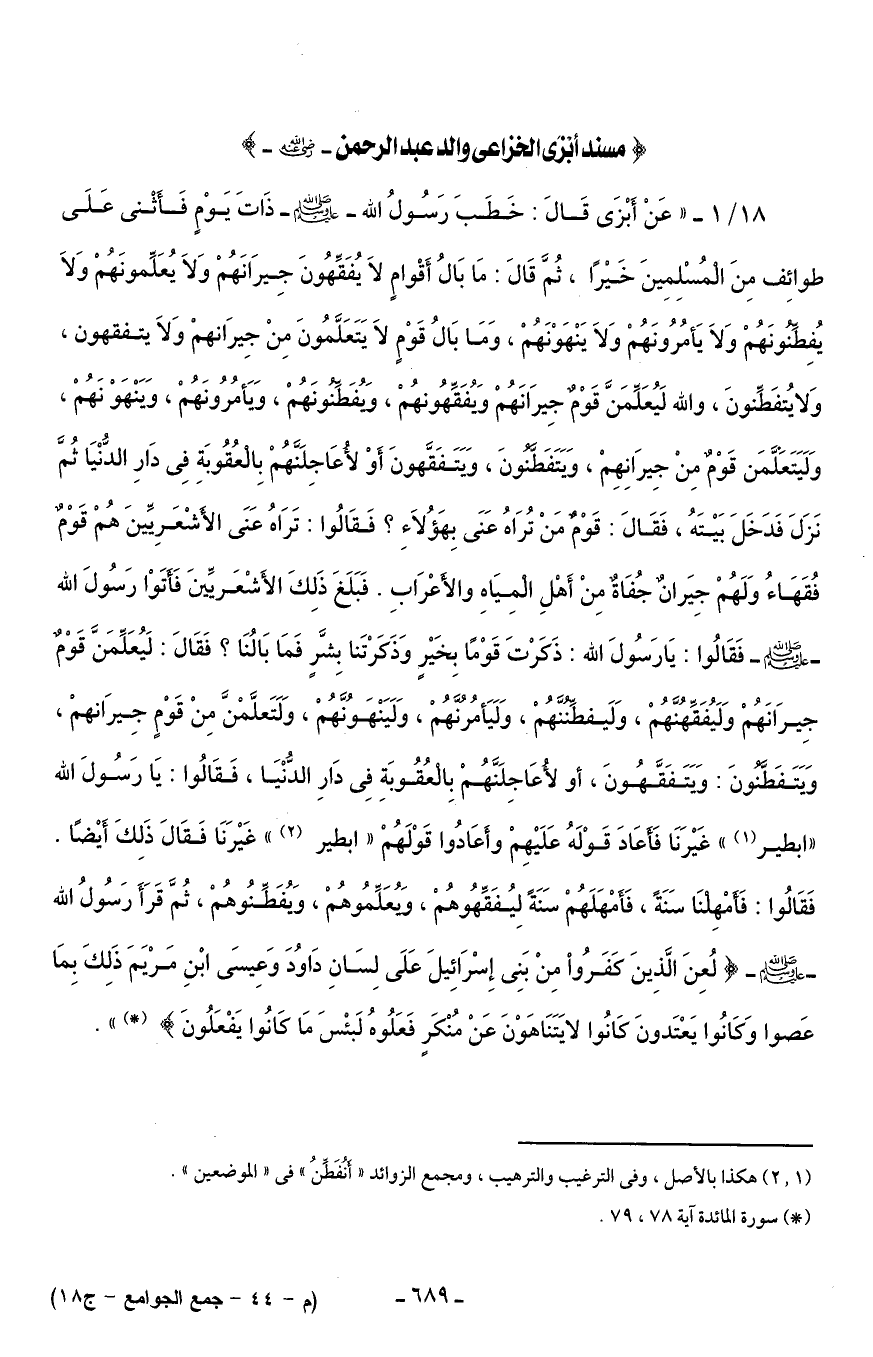 ﴿ مسند أبزى الخزاعى والد عبد الرحمن ـ رضي الله عنه ـ ﴾
١/١٨ ـ « عَنْ أَبْزَى قَالَ : خَطَبَ رَسُولُ الله ـ ﷺ ـ ذَاتَ يَوْمٍ فَأَثْنى عَلَى
طوائف مِنَ الْمُسْلِمِينَ خَيْرًا ، ثُمَّ قَالَ : مَا بَالُ أَقْوامٍ لاَ يُفَقِّهُونَ جِيرَانَهُمْ وَلاَ يُعَلِّمونَهُمْ وَلاَ
يُفطِّنُونَهُمْ وَلاَ يَأمُرُونَهُمْ وَلاَ يَنْهَوْنَهُمْ ، وَمَا بَالُ قَوْمٍ لاَ يَتَعَلَّمُونَ مِنْ جِيرَانهمْ وَلاَ يتفقهون ،
وَلا يُتفَطِّنونَ ، والله لَيُعَلِّمَنَّ قَوْمٌ جيرَانَهُمْ وَيُفَقِّهُونهُمْ ، وَيُفَطِّنُونهُمْ ، وَيَأمُرُونَهُمْ ، وَيَنْهَوْنَهُمْ ،
وَلَيَتَعلَّمَن قَوْمٌ مِنْ جيرَانِهِمْ ، وَيَتَفَطَّنُونَ ، وَيَتَفَقَّهون أَوْ لأُعَاجلَنَّهُمْ بالْعُقُوبَةِ فِى دَارِ الدُّنْيَا ثُمَّ
نَزَلَ فَدَخَلَ بَيْتَهُ ، فَقَالَ : قَوْمٌ مَنْ تُرَاهُ عَنَى بِهَؤُلاَءِ ؟ فَقَالُوا : تَرَاهُ عَنَى الأَشْعَرِيِّينَ هُمْ قَوْمٌ
فُقَهَاءُ وَلَهُمْ جيرَانٌ جُفَاةٌ مِنْ أَهْلِ الميَاه والأَعْرَاب . فَبَلَغَ ذَلِكَ الأَشْعَرِيِّينَ فَأَتَوْا رَسُولَ الله
ـ ﷺ ـ فَقَالُوا : يَارَسُولَ الله : ذكَرْتَ قَوْمًا بِخَيْرٍ وَذَكَرْتَنا بِشَرٍّ فَمَا بَالُنَا ؟ فَقَالَ : لَيُعَلِّمَنَّ قَوْمٌ
جيرَانَهُمْ وَلَيُفَقِّهُنَّهُمْ ، وَلَيفطِّنُنَّهُمْ ، وَلَيَأمُرُنَّهُمْ ، وَلَيَنْهَوُنَّهُمْ ، وَلَتَعلَّمْنَّ مِنْ قَوْمٍ جيرَانهمْ ،
وَيَتَفَطَّنُونَ : وَيَتَفَقَّهُونَ ، أو لأُعَاجلَنَّهُمْ بالْعُقُوبَةِ فِى دَارِ الدُّنْيَا ، فَقَالُوا : يَا رَسُولَ الله
«ابطير(١) » غَيْرَنَا فَأَعَادَ قَوْلَهُ عَلَيهِمْ وأَعَادُوا قَوْلَهُمْ « ابطير (٢) » غَيْرَنَا فَقَالَ ذَلكَ أَيْضًا .
فَقَالُوا : فَأَمْهِلْنَا سَنَةً ، فَأَمْهَلَهُمْ سَنَةً لِيُفَقِّهُوهُمْ ، وَيُعَلِّمُوهُمْ ، وَيُفَطِّنُوهُمْ ، ثُمَّ قَرَأَ رَسُولُ الله
ـ ﷺ ـ ﴿ لُعِنَ الَّذِينَ كَفَرُواْ مِنْ بَنى إسْرَائيلَ عَلَى لسَانِ دَاودَ وَعيسَى ابْنِ مَرْيَمَ ذَلِكَ بِمَا
عَصوا وَكَانُوا يَعْتَدونَ كَانُوا لايَتَنَاهَوْنَ عَنْ مُنْكَرٍ فَعَلُوهُ لَبئْسَ مَا كَانُوا يَفْعَلُونَ ﴾ (*) » .
(١ , ٢) هكذا بالأصل ، وفى الترغيب والترهيب ، ومجمع الزوائد « أَنُفَطِّنُ » فى « الموضعين » .
(*) سورة المائدة آية ٧٨ ، ٧٩ .
ـ ٦٨٩ ـ
(م - ٤٤ - جمع الجوامع - ج١٨)